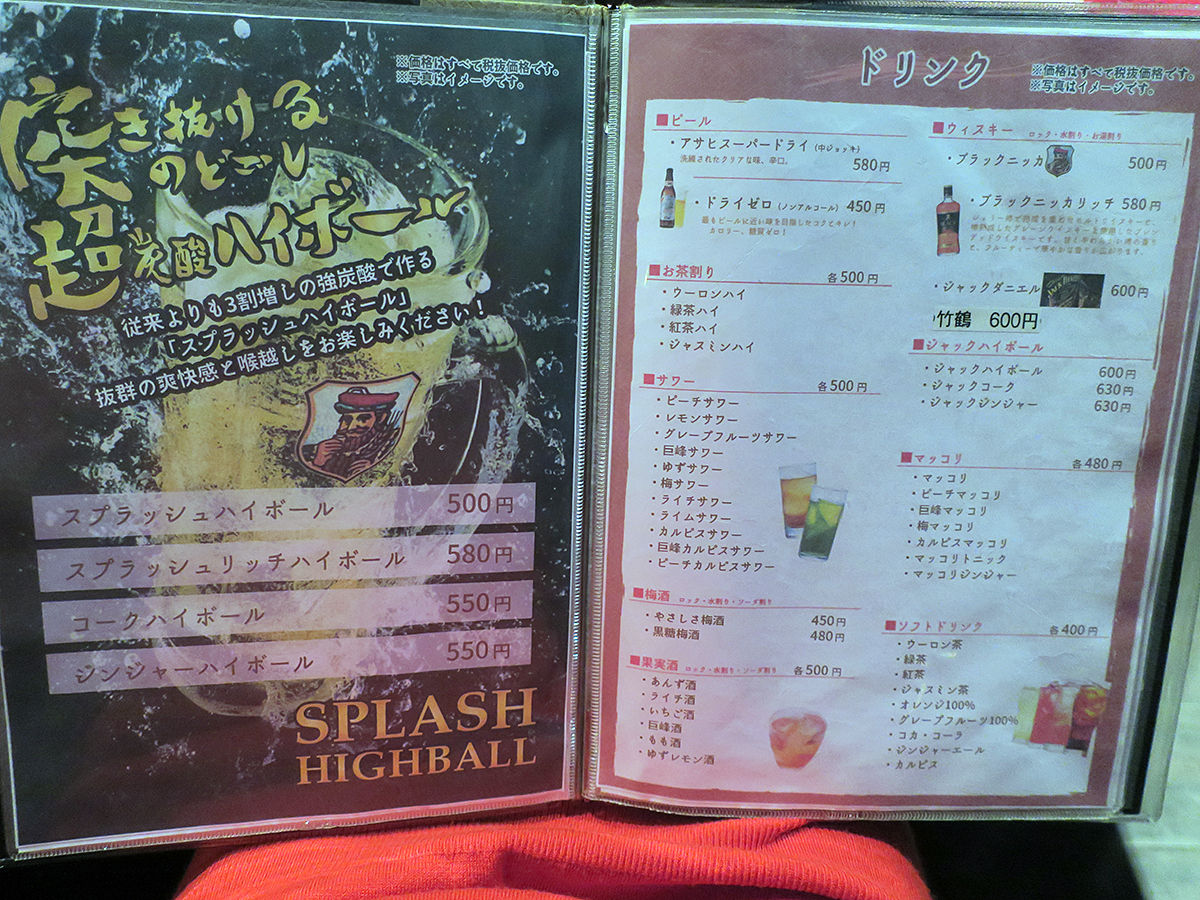 ※価格はすべて税抜価格です。
※写真はイメージです。
突き抜ける
のどごし
超炭酸ハイボール
従来よりも3割増しの強炭酸で作る
「スプラッシュハイボール」
抜群の爽快感と喉越しをお楽しみください！
スプラッシュハイボール 500円
スプラッシュリッチハイボール 580円
コークハイボール 550円
ジンジャーハイボール 550円
SPLASH
HIGHBALL
ドリンク
※価格はすべて税抜価格です。
※写真はイメージです。
■ビール
・アサヒスーパードライ（中ジョッキ）
洗練されたクリアな味、辛口。
580円
・ドライゼロ（ノンアルコール） 450円
最もビールに近い味を目指したコクとキレ！
カロリー、糖質ゼロ！
■お茶割り 各500円
・ウーロンハイ
・緑茶ハイ
・紅茶ハイ
・ジャスミンハイ
■サワー 各500円
・ピーチサワー
・レモンサワー
・グレープフルーツサワー
・巨峰サワー
・ゆずサワー
・梅サワー
・ライチサワー
・ライムサワー
・カルピスサワー
・巨峰カルピスサワー
・ピーチカルピスサワー
■梅酒 ロック・水割り・ソーダ割り
・やさしさ梅酒 450円
・黒糖梅酒 480円
■果実酒 ロック・水割り・ソーダ割り 各500円
・あんず酒
・ライチ酒
・いちご酒
・巨峰酒
・もも酒
・ゆずレモン酒
■ウィスキー ロック・水割り・お湯割り
・ブラックニッカ 500円
・ブラックニッカリッチ 580円
・ジャックダニエル 600円
竹鶴 600円
■ジャックハイボール
・ジャックハイボール 600円
・ジャックコーク 630円
・ジャックジンジャー 630円
■マッコリ 各480円
・マッコリ
・ピーチマッコリ
・巨峰マッコリ
・梅マッコリ
・カルピスマッコリ
・マッコリトニック
・マッコリジンジャー
■ソフトドリンク 各400円
・ウーロン茶
・緑茶
・紅茶
・ジャスミン茶
・オレンジ100%
・グレープフルーツ100%
・コカ・コーラ
・ジンジャーエール
・カルピス